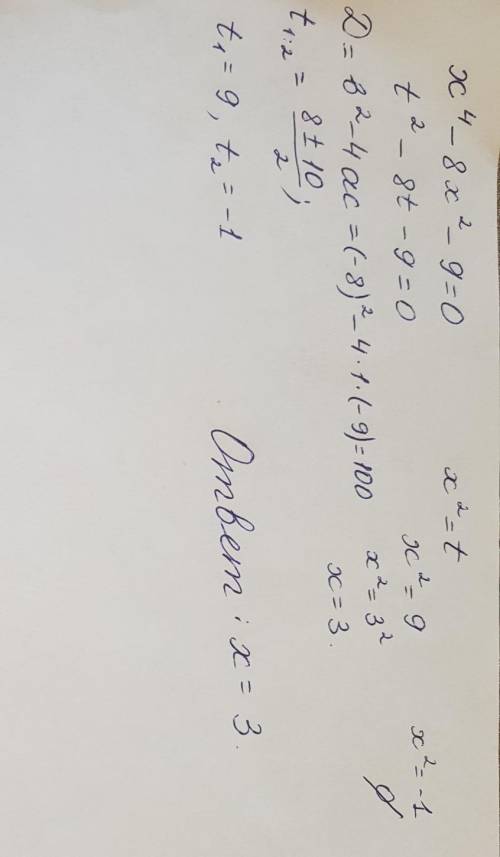 x⁴ - 8x² - 9 = 0
x² = t
t² - 8t - 9 = 0
D = в² - 4ac = (-8)² - 4·1·(-9) = 100
t₁,₂ = (8 ± 10)/2;
t₁ = 9, t₂ = -1
x² = 9
x² = 3²
x = 3.
x² = -1
∅
Ответ: x = 3.